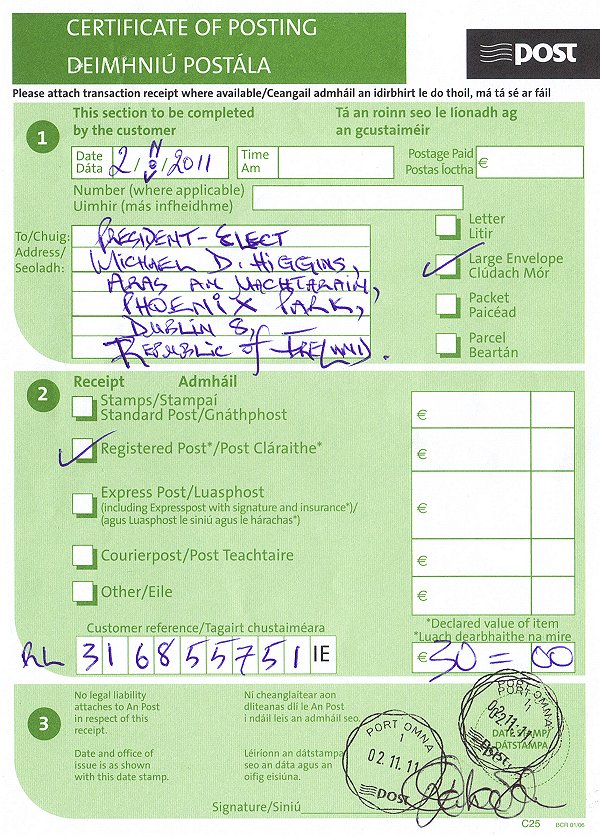 CERTIFICATE OF POSTING
DEIMHNIÚ POSTÁLA
post
Please attach transaction receipt where available/Ceangail admháil an idirbhirt le do thoil, má tá sé ar fáil
1
This section to be completed
by the customer
Tá an roinn seo le líonadh ag
an gcustaiméir
Date
Dáta
2/11/2011
Time
Am
Postage Paid
Postas íoctha
€
Number (where applicable)
Uimhir (más infheidhme)
To/Chuig:
Address/
Seoladh:
PRESIDENT-ELECT
MICHAEL D. HIGGINS,
ARAS AN UACHTARAIN,
PHOENIX PARK,
DUBLIN 8,
REPUBLIC OF IRELAND.
Letter
Litir
Large Envelope
Clúdach Mór
Packet
Paicéad
Parcel
Beartán
2
Receipt Admháil
Stamps/Stampaí
Standard Post/Gnáthphost
€
Registered Post*/Post Cláraithe*
€
Express Post/Luasphost
(including Expresspost with signature and insurance*)/
(agus Luasphost le siniú agus le hárachas*)
€
Courierpost/Post Teachtaire
€
Other/Eile
€
Customer reference/Tagairt chustaiméara
*Declared value of item
*Luach dearbhaithe na míre
RL 316855751 IE
€30 = 00
3
No legal liability
attaches to An Post
in respect of this
receipt.
Ní cheanglaítear aon
dliteanas dlí le An Post
i ndáil leis an admháil seo.
Date and office of
issue is as shown
with this date stamp.
Léiríonn an dátstampa
seo an dáta agus an
oifig eisiúna.
PORT OMNA
1
02.11.11
post
PORT OMNA
1
02.11.11
post
DATE STAMP/
DÁTSTAMPA
Signature/Siniú
C25 BCR 01/06